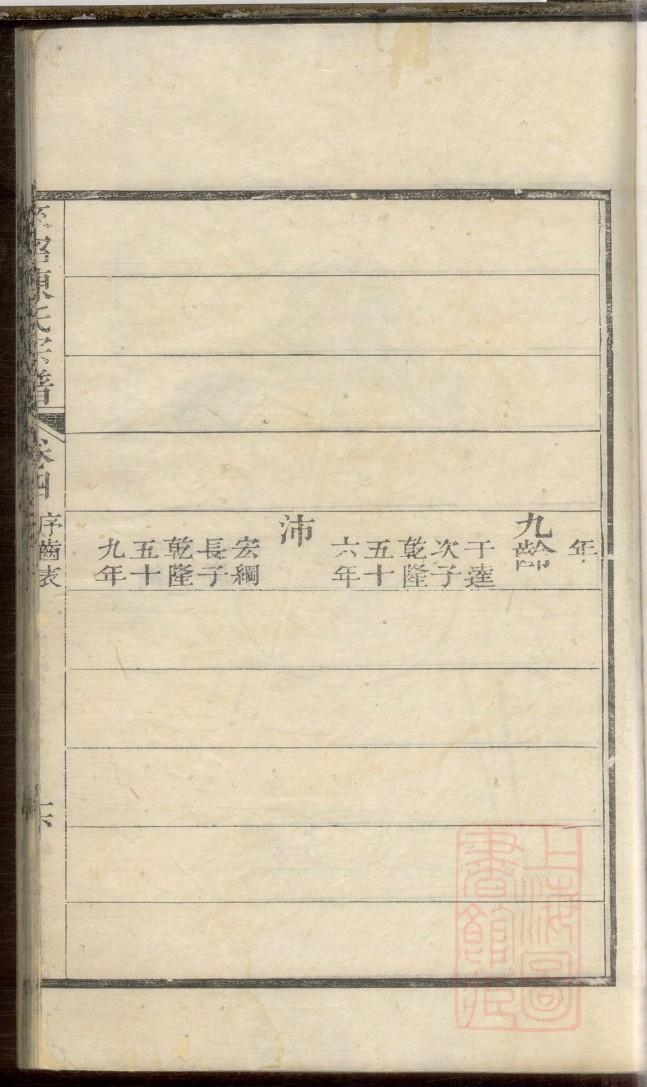 年
九齡
于達
次子
乾隆
五十
六年
沛
宏綱
長子
乾隆
五十
九年
陳氏宗譜
卷四
序齒表
六
上海圖
書館藏